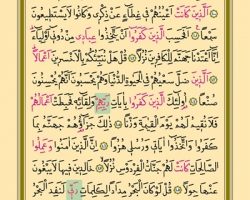 الَّذِينَ كَانَتْ أَعْيُنُهُمْ فِي غِطَاءٍ عَن ذِكْرِي وَكَانُوا لَا يَسْتَطِيعُونَ
سَمْعًا أَفَحَسِبَ الَّذِينَ كَفَرُوا أَن يَتَّخِذُوا عِبَادِي مِن دُونِي أَوْلِيَاءَ
إِنَّا أَعْتَدْنَا جَهَنَّمَ لِلْكَافِرِينَ نُزُلًا قُلْ هَلْ نُنَبِّئُكُم بِالْأَخْسَرِينَ أَعْمَالًا
الَّذِينَ ضَلَّ سَعْيُهُمْ فِي الْحَيَاةِ الدُّنْيَا وَهُمْ يَحْسَبُونَ أَنَّهُمْ يُحْسِنُونَ
صُنْعًا أُولَٰئِكَ الَّذِينَ كَفَرُوا بِآيَاتِ رَبِّهِمْ وَلِقَائِهِ فَحَبِطَتْ أَعْمَالُهُمْ
فَلَا نُقِيمُ لَهُمْ يَوْمَ الْقِيَامَةِ وَزْنًا ذَٰلِكَ جَزَاؤُهُمْ جَهَنَّمُ بِمَا
كَفَرُوا وَاتَّخَذُوا آيَاتِي وَرُسُلِي هُزُوًا إِنَّ الَّذِينَ آمَنُوا وَعَمِلُوا
الصَّالِحَاتِ كَانَتْ لَهُمْ جَنَّاتُ الْفِرْدَوْسِ نُزُلًا خَالِدِينَ فِيهَا لَا يَبْغُونَ
عَنْهَا حِوَلًا قُل لَّوْ كَانَ الْبَحْرُ مِدَادًا لِّكَلِمَاتِ رَبِّي لَنَفِدَ الْبَحْرُ